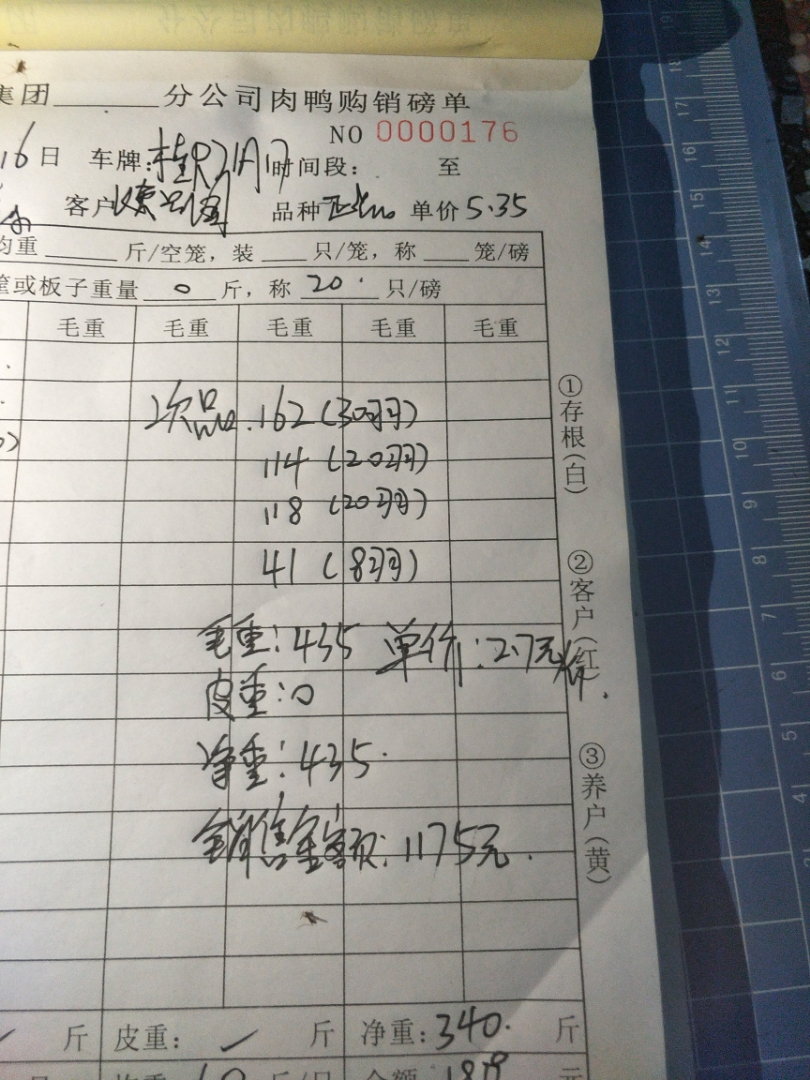 集团______分公司肉鸭购销磅单
NO 0000176
16日 车牌: 时间段: 至
客户 品种 单价 5.35
均重____斤/空笼，装___只/笼，称___笼/磅
或板子重量 0 斤，称 20 只/磅
毛重 毛重 毛重 毛重 毛重
次品 162 (30羽)
114 (20羽)
118 (20羽)
41 (8羽)
毛重: 435 单价: 2.7元/斤.
皮重: 0
净重: 435.
销售金额: 1175元.
①存根(白)
②客户(红)
③养户(黄)
斤 皮重: 斤 净重: 340. 斤
斤/只 金额: 元